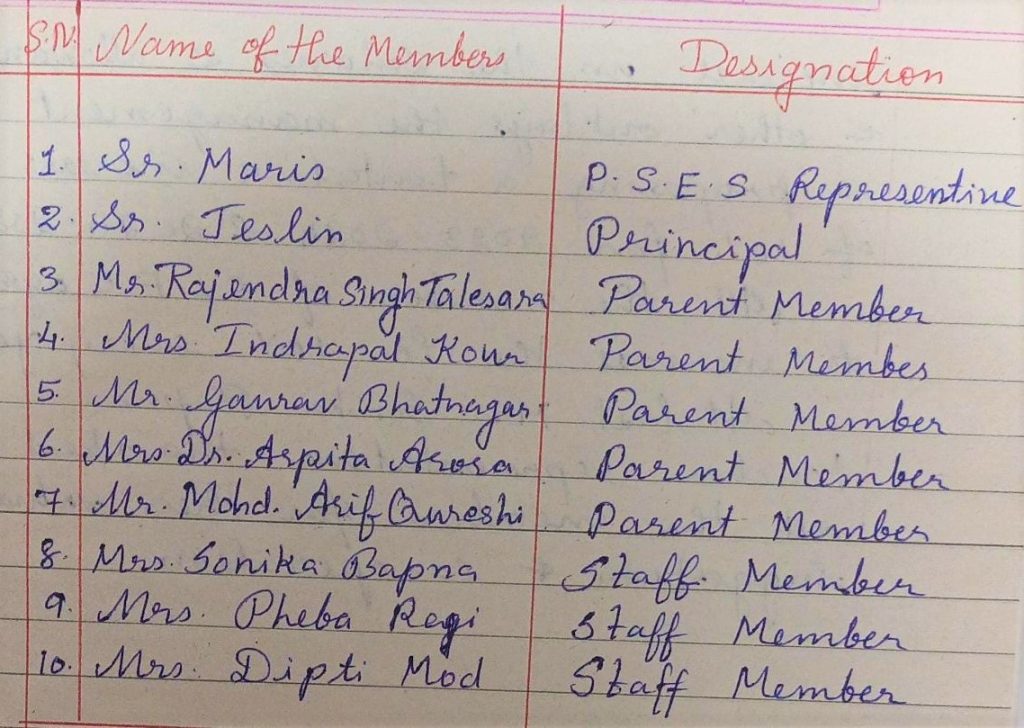 S.N. Name of the Members Designation
1. Sr. Maris P. S. E. S Representive
2. Sr. Jeslin Principal
3. Mr. Rajendra Singh Talesara Parent Member
4. Mrs. Indrapal Kour Parent Member
5. Mr. Gaurav Bhatnagar Parent Member
6. Mrs. Dr. Arpita Arora Parent Member
7. Mr. Mohd. Arif Qureshi Parent Member
8. Mrs. Sonika Bapna Staff Member
9. Mrs. Pheba Regi Staff Member
10. Mrs. Dipti Mod Staff Member